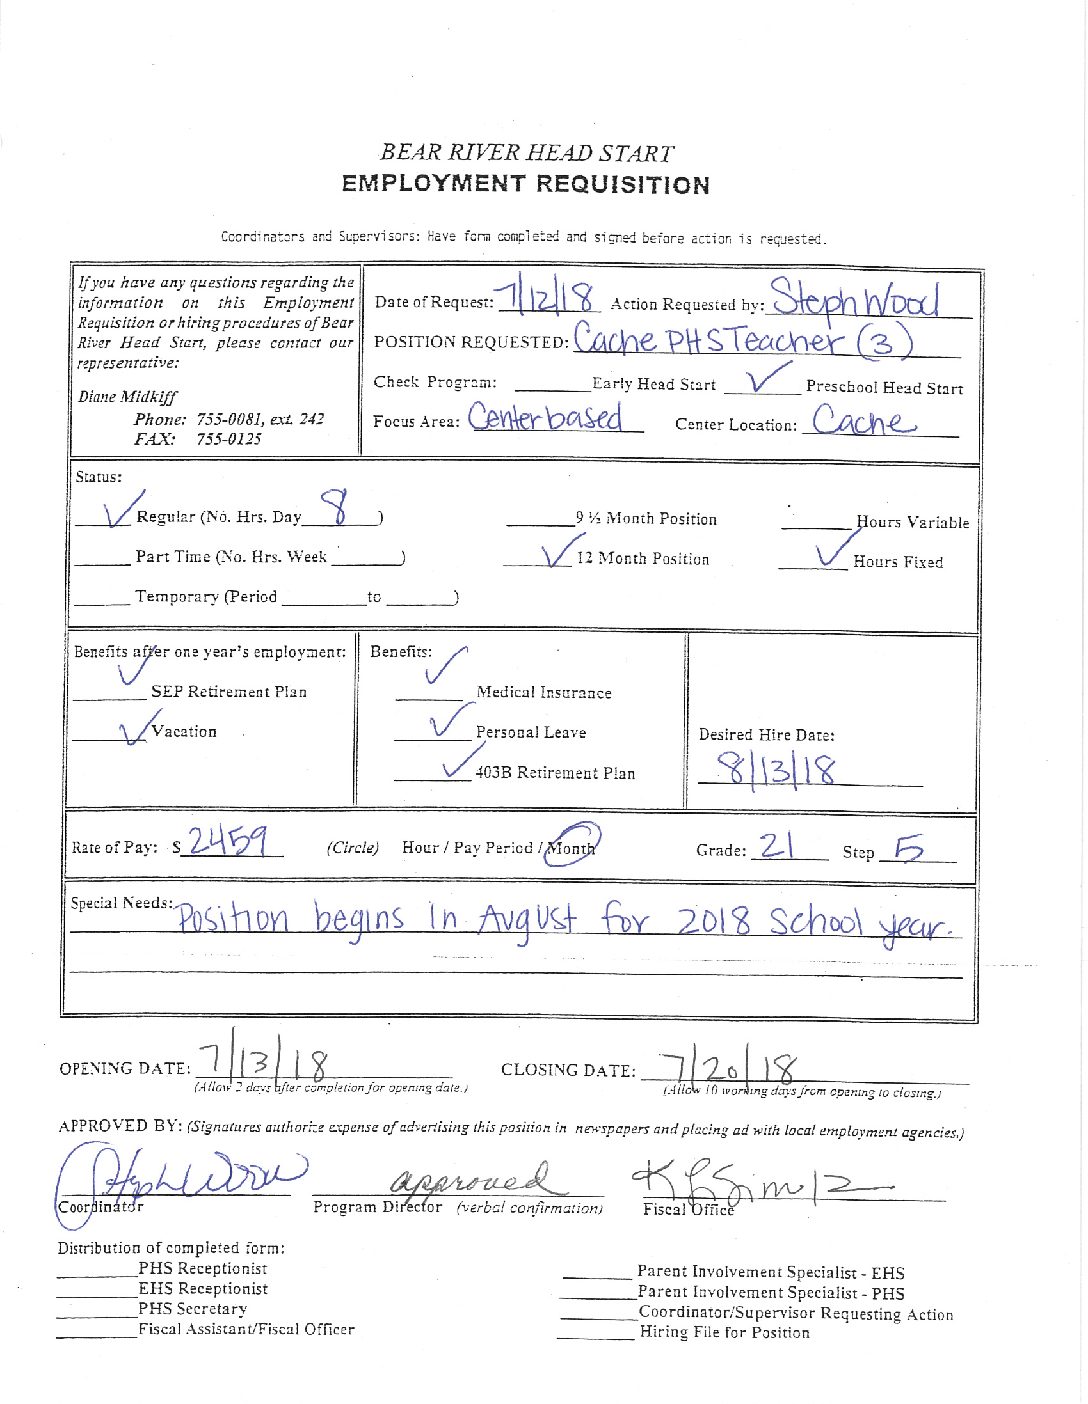 BEAR RIVER HEAD START
EMPLOYMENT REQUISITION
Coordinators and Supervisors: Have form completed and signed before action is requested.
If you have any questions regarding the
information on this Employment
Requisition or hiring procedures of Bear
River Head Start, please contact our
representative:
Diane Midkiff
Phone: 755-0081, ext. 242
FAX: 755-0125
Date of Request: 7/12/18 Action Requested by: Steph Wood
POSITION REQUESTED: Cache PHS Teacher (3)
Check Program: ______ Early Head Start ✓ Preschool Head Start
Focus Area: Center based Center Location: Cache
Status:
✓ Regular (No. Hrs. Day 8 ) ______ 9 ½ Month Position ______ Hours Variable
______ Part Time (No. Hrs. Week ______) ✓ 12 Month Position ✓ Hours Fixed
______ Temporary (Period ______ to ______)
Benefits after one year's employment:
✓ SEP Retirement Plan
✓ Vacation
Benefits:
✓ Medical Insurance
✓ Personal Leave
✓ 403B Retirement Plan
Desired Hire Date:
8/13/18
Rate of Pay: $ 2459 (Circle) Hour / Pay Period / Month Grade: 21 Step 5
Special Needs: Position begins in August for 2018 School year.
OPENING DATE: 7/13/18 CLOSING DATE: 7/20/18
(Allow 2 days after completion for opening date.) (Allow 10 working days from opening to closing.)
APPROVED BY: (Signatures authorize expense of advertising this position in newspapers and placing ad with local employment agencies.)
Steph Wood approved
Coordinator Program Director (verbal confirmation) Fiscal Office
Distribution of completed form:
______ PHS Receptionist
______ EHS Receptionist
______ PHS Secretary
______ Fiscal Assistant/Fiscal Officer
______ Parent Involvement Specialist - EHS
______ Parent Involvement Specialist - PHS
______ Coordinator/Supervisor Requesting Action
______ Hiring File for Position